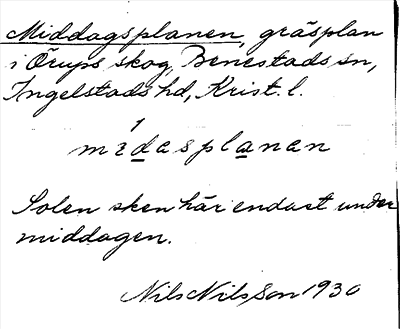 Middagsplanen, gräsplan
i Örups skog, Benestads sn,
Ingelstads hd, Krist. l.
midasplanen
Solen sken här endast under
middagen.
Nils Nilsson 1930